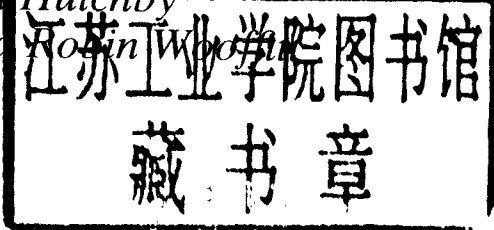 Hutchby
Robin Wooffitt
江苏工业学院图书馆
藏书章